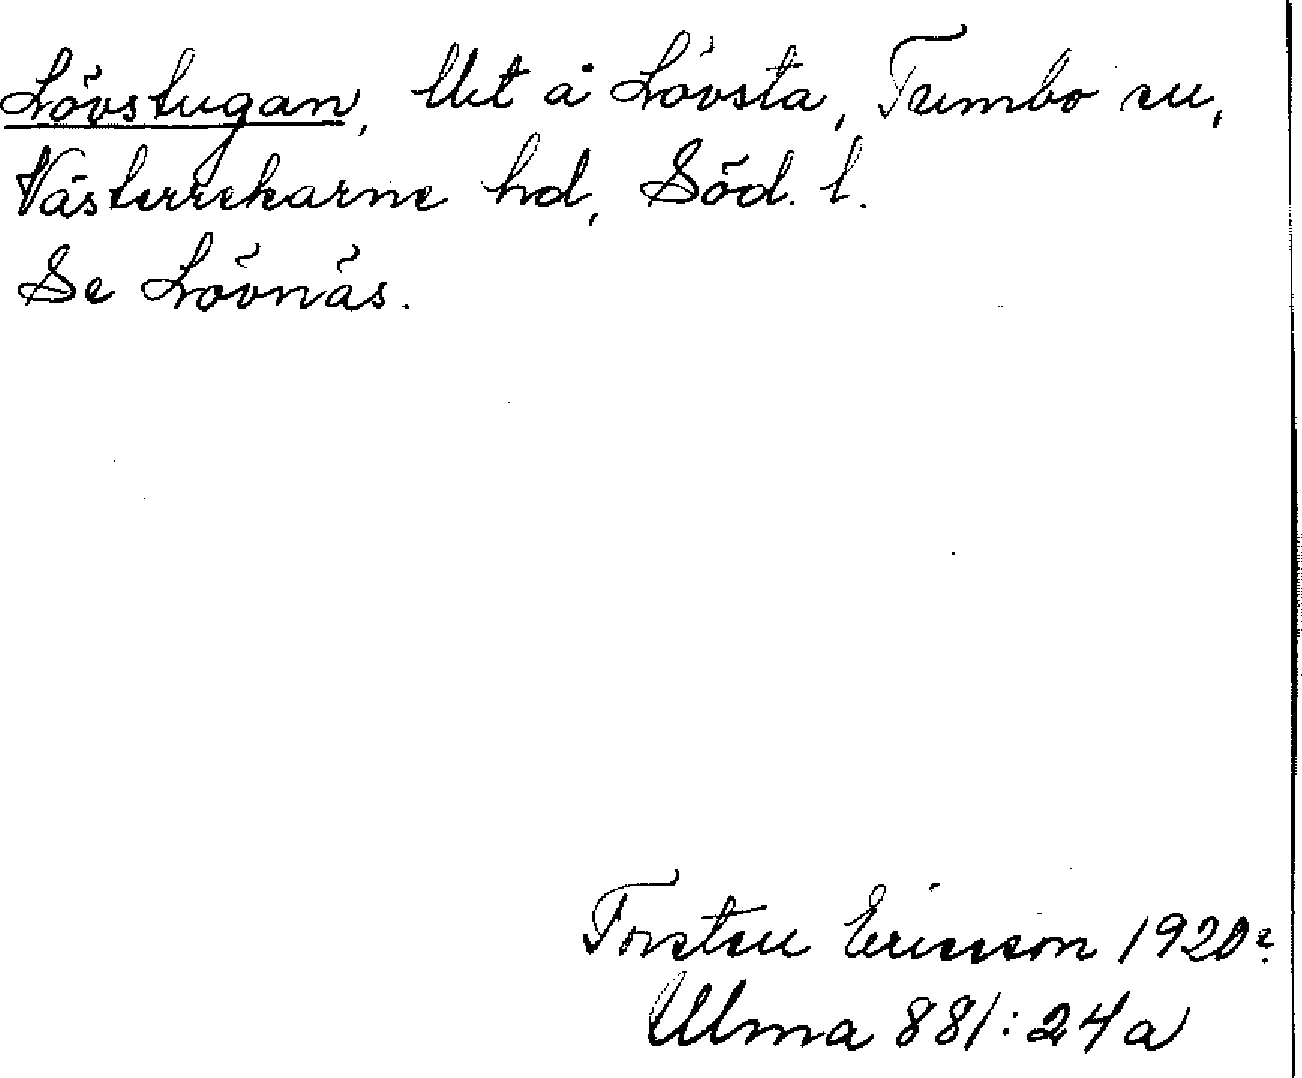 Lövstugan, Urt å Lövsta, Tumbo sn,
Västerrekarne hd, Söd. l.
Se Lövnäs.
Torsten Ericsson 1920?
Ulma 881:24a